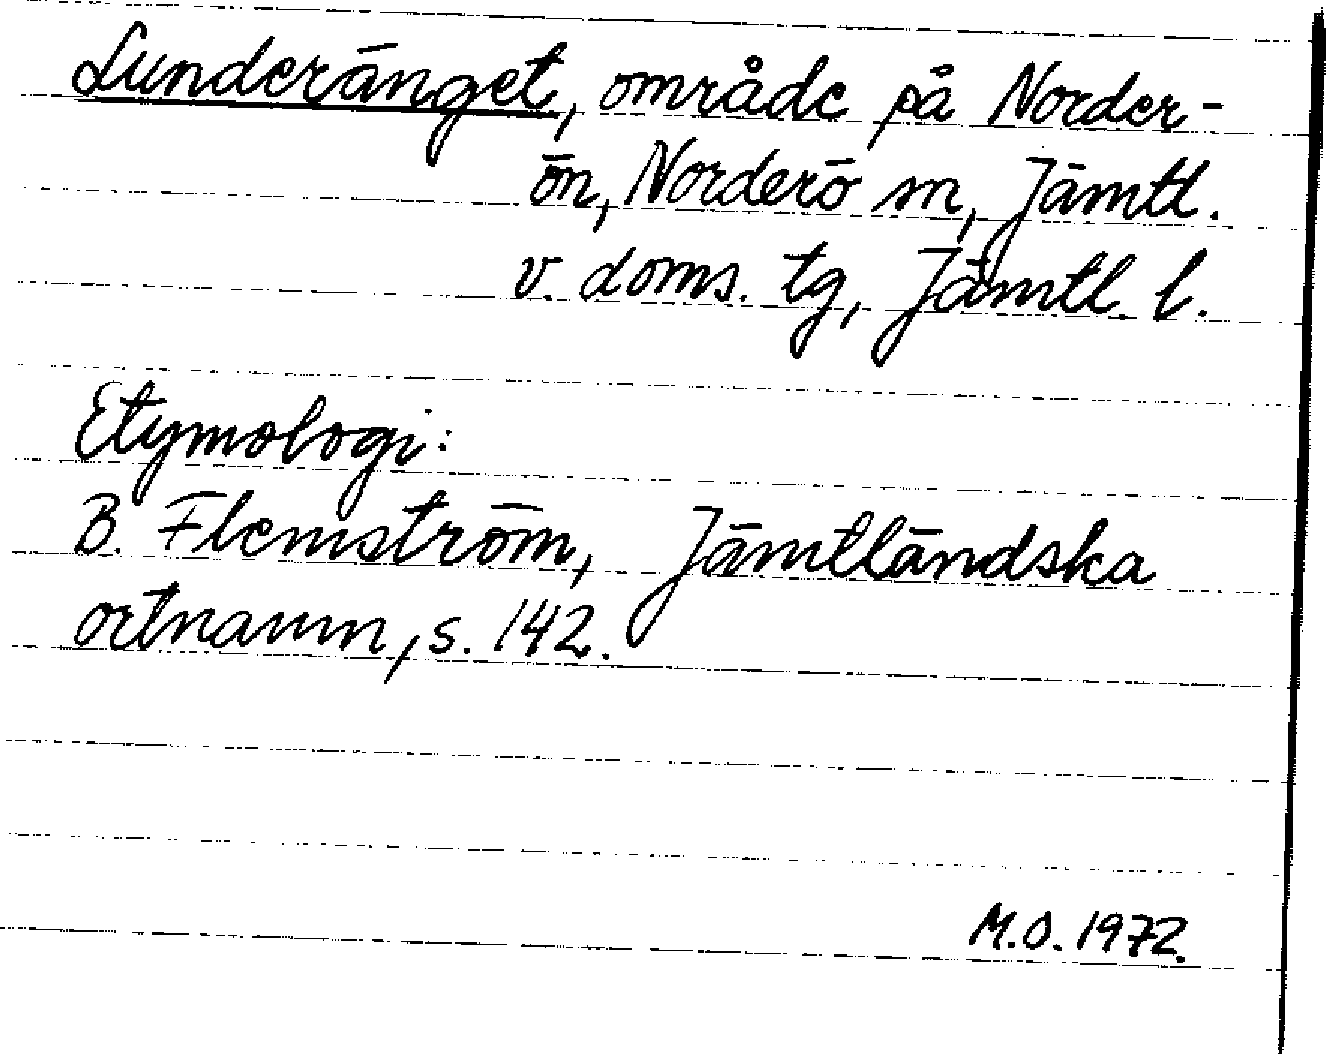 Lunderänget, område på Norder-
ön, Norderö sn, Jämtl.
v. doms. tg, Jämtl. l.
Etymologi:
B. Flemström, Jämtländska
ortnamn, s. 142.
M.O. 1972.